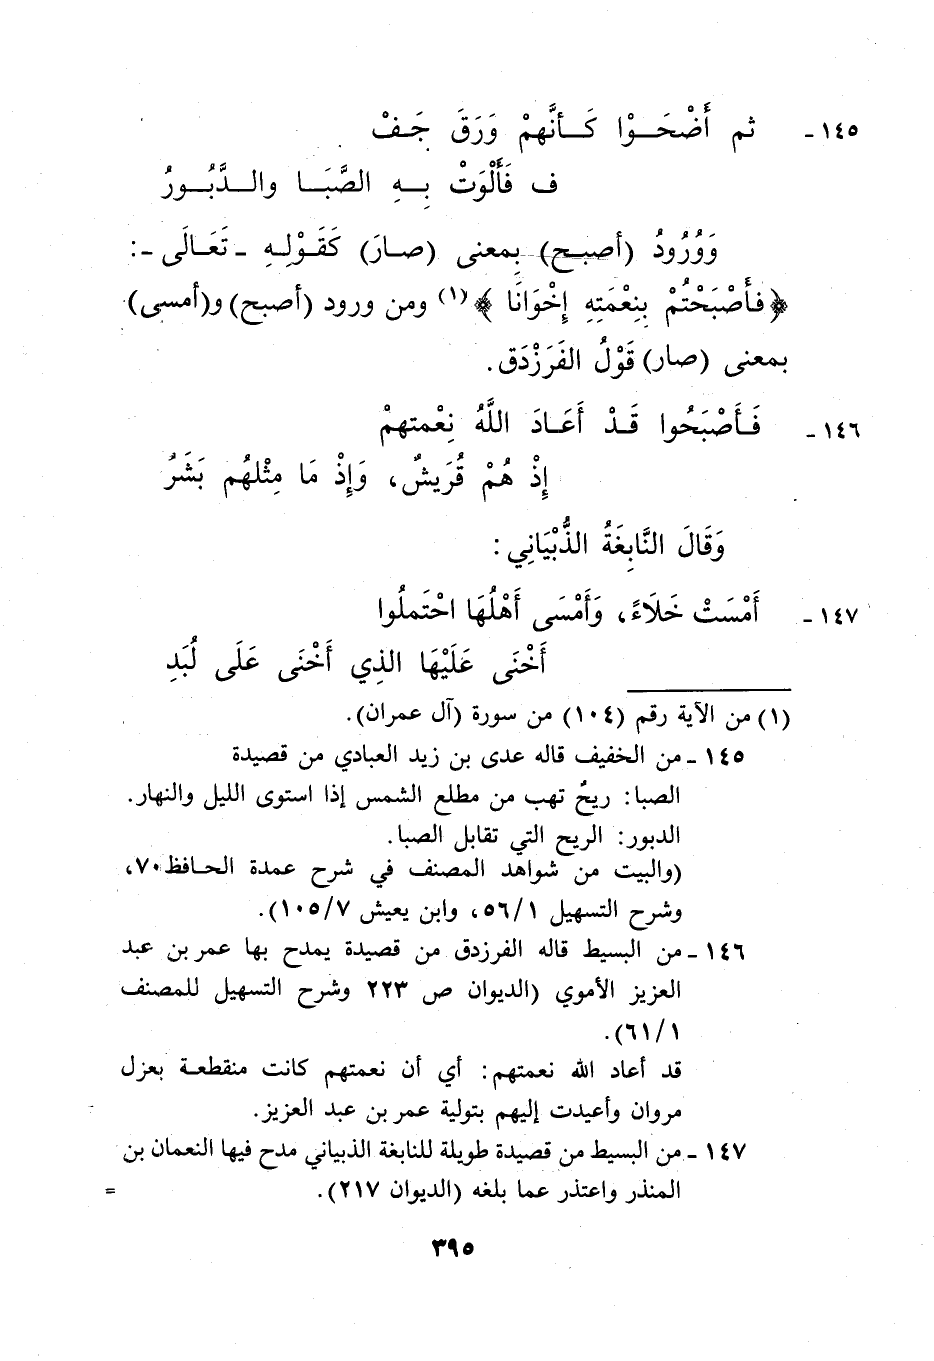 ١٤٥ - ثم أَضْحَـــوْا كَـــأنَّهمْ وَرَقَ جَـفْ
ف فَأَلْوَتْ بِـــهِ الصَّبَـــا والـــدَّبُـــورُ
وَوُرودُ (أصبـح) بِمعنى (صـارَ) كَقَوْلِـهِ - تَعَـالَى -:
﴿فأَصْبَحْتُمْ بِنِعْمَتِهِ إِخْوَانَا﴾(١) ومن ورود (أصبح) و(أمسى)
بمعنى (صار) قَوْلُ الفَرَزْدَق.
١٤٦ - فَـأَصْبَحُوا قَـدْ أَعَـادَ اللَّهُ نِعْمتهمْ
إِذْ هُمْ قُرَيشٌ، وَإِذْ مَا مِثْلهُم بَشَرُ
وَقَالَ النَّابِغَةُ الذُّبْيَانِي:
١٤٧ - أَمْسَتْ خَلَاءً، وَأَمْسَى أَهْلُهَا احْتَملُوا
أَخْنَى عَلَيْهَا الذِي أَخْنَى عَلَى لُبَدِ
(١) من الآية رقم (١٠٤) من سورة (آل عمران).
١٤٥ - من الخفيف قاله عدى بن زيد العبادي من قصيدة
الصبا: ريحُ تهب من مطلع الشمس إذا استوى الليل والنهار.
الدبور: الريح التي تقابل الصبا.
(والبيت من شواهد المصنف في شرح عمدة الحـافظ ٧٠،
وشرح التسهيل ٥٦/١، وابن يعيش ١٠٥/٧).
١٤٦ - من البسيط قاله الفرزدق من قصيدة يمدح بها عمر بن عبد
العزيز الأموي (الديوان ص ٢٢٣ وشرح التسهيل للمصنف
٦١/١).
قد أعاد الله نعمتهم: أي أن نعمتهم كانت منقطعـة بعزل
مروان وأعيدت إليهم بتولية عمر بن عبد العزيز.
١٤٧ - من البسيط من قصيدة طويلة للنابغة الذبياني مدح فيها النعمان بن
المنذر واعتذر عما بلغه (الديوان ٢١٧). =
٣٩٥